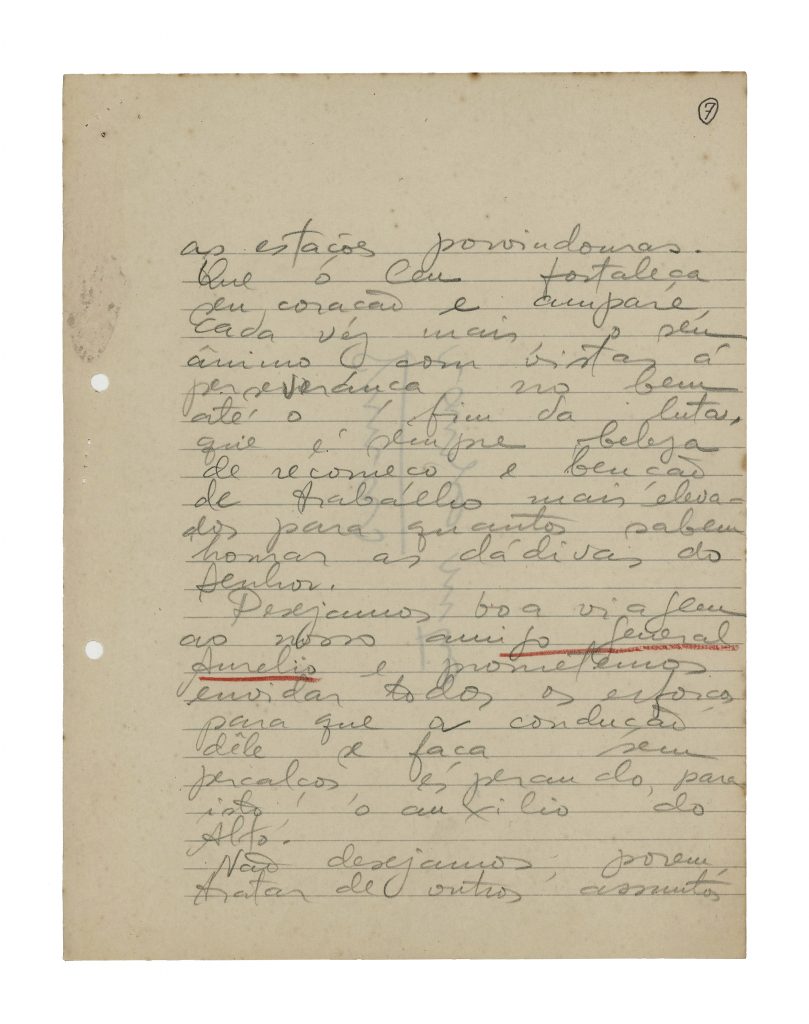 7
as estações porvindouras.
Que o Céu fortaleça
seu coração e ampare,
cada vêz mais o seu
ânimo com vistas á
perseverança no bem
até o fim da luta,
que é sempre beleza
de recomeço e benção
de trabalho mais eleva-
dos para quantos sabem
honrar as dádivas do
Senhor.
Desejamos boa viagem
ao nosso amigo General
Aurelio e prometemos
envidar todos os esforços
para que a condução
dêle se faça sem
percalços, esperando, para
isto, o auxilio do
Alto.
Não desejamos, porem,
tratar de outros assuntos